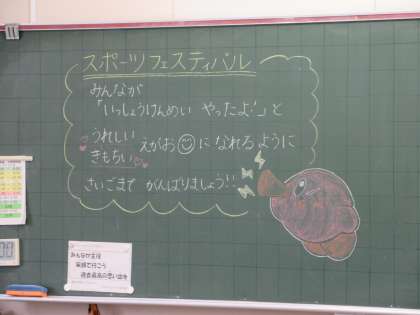 スポーツフェスティバル
みんなが
「いっしょうけんめい やったよ!」と
うれしい
きもちい
えがお☺に なれるように
さいごまで がんばりましょう!!
みんなが主役
笑顔で行こう
過去最高の思い出を